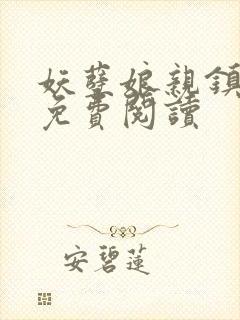 妖孽娘親鎮
免費閱讀
安碧蓮